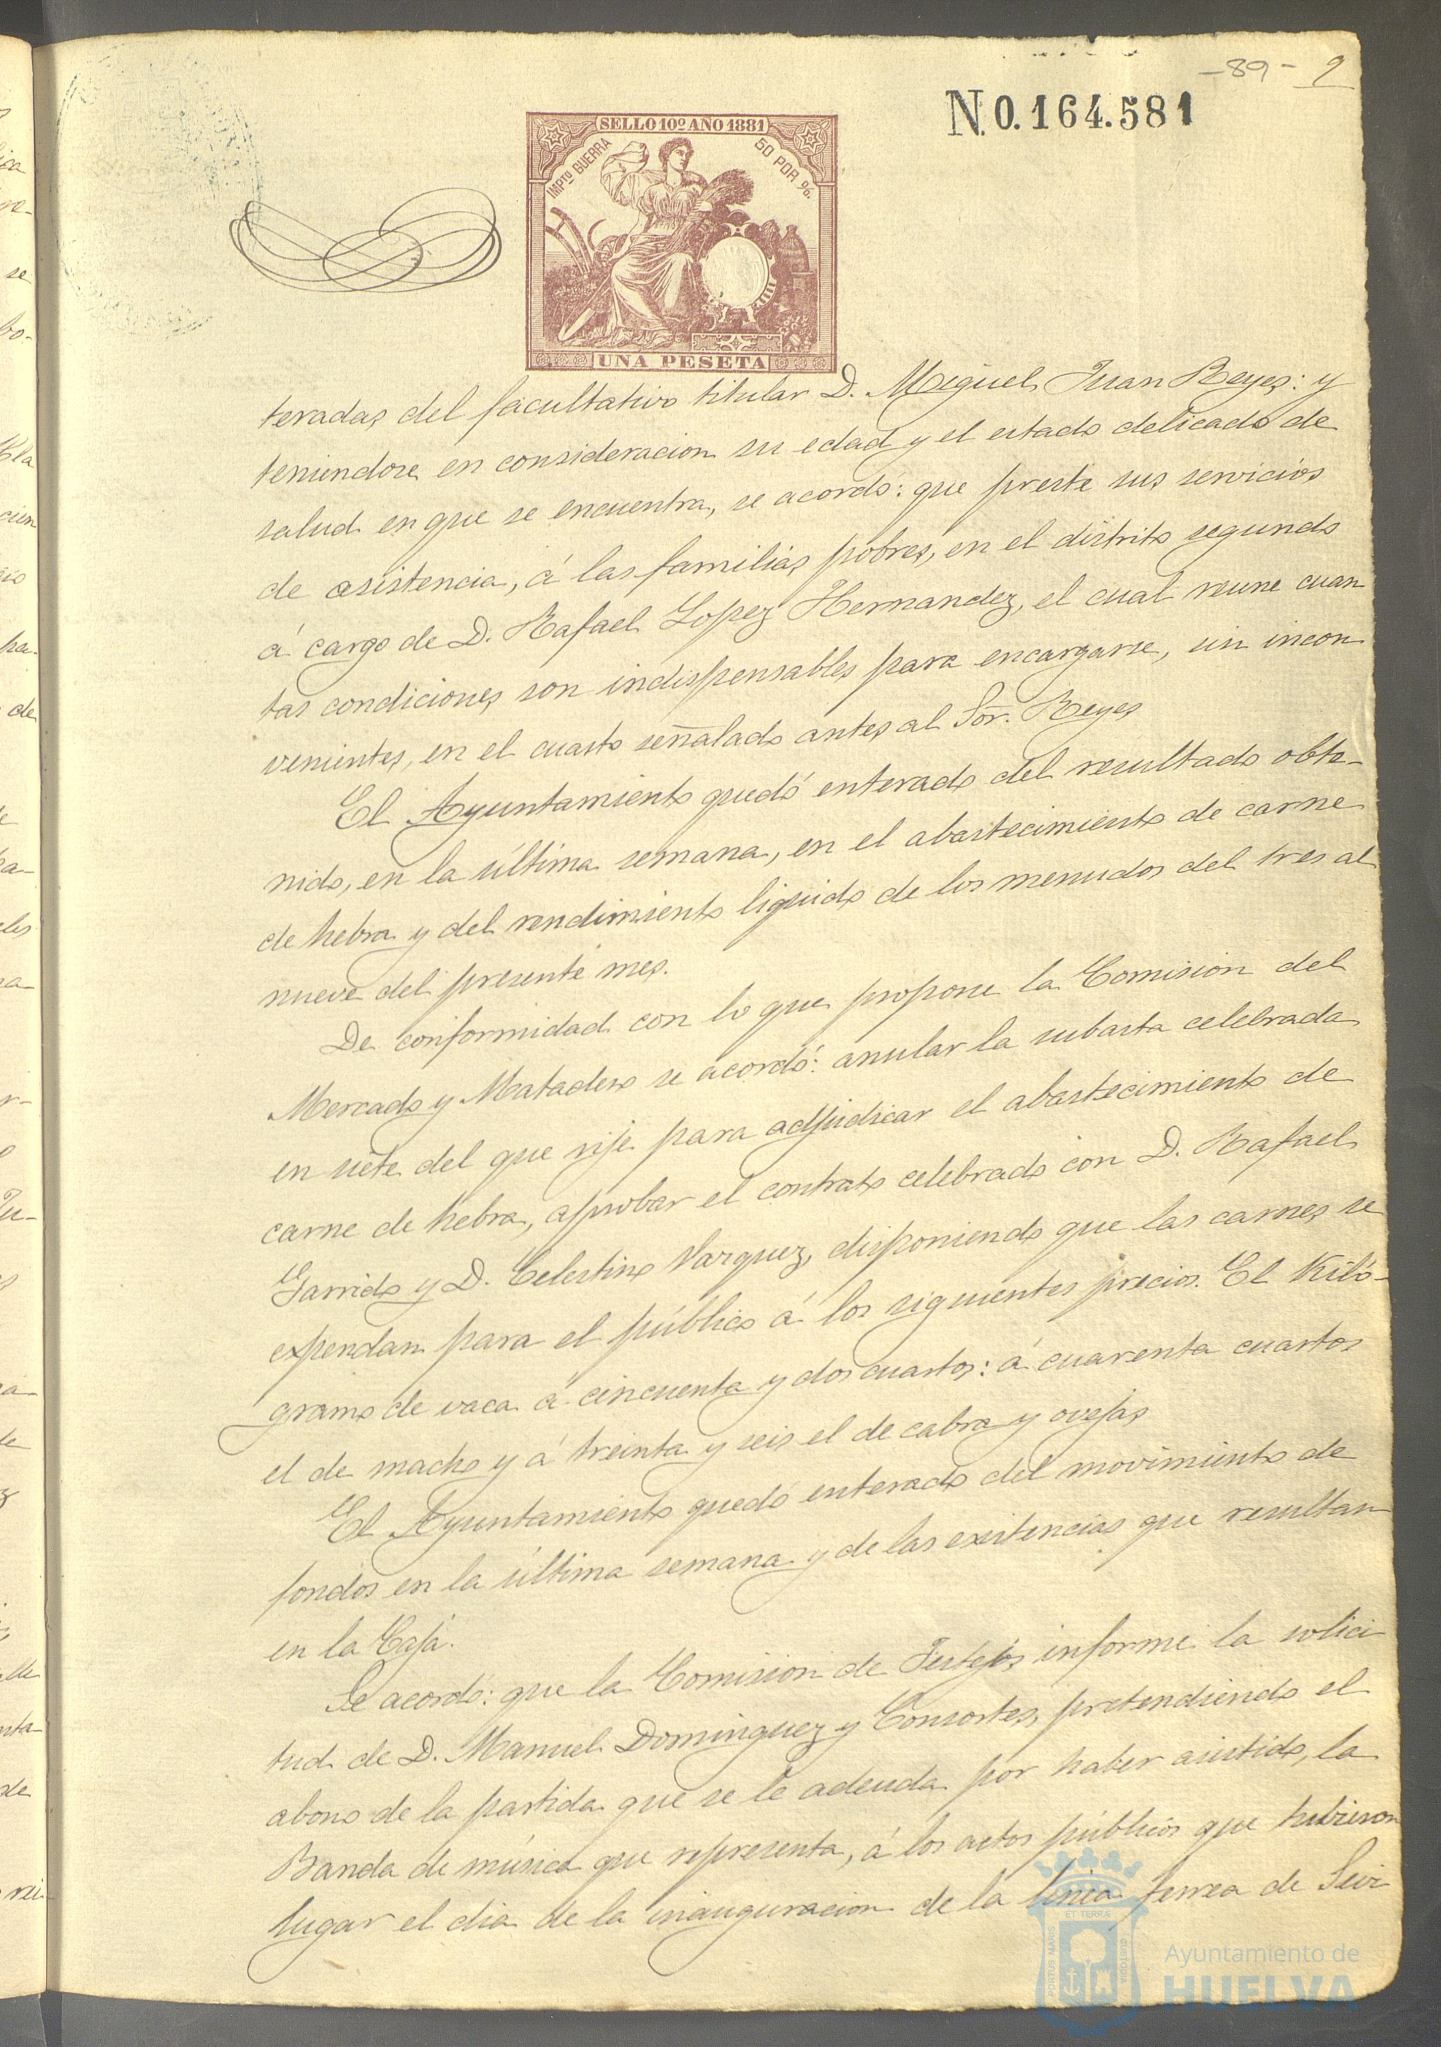 -89-  2
N.0.164.581
SELLO 10º AÑO 1881
IMPTO GUERRA 50 POR %.
UNA PESETA
teradas del facultativo titular D. Miguel Juan Reyes: y
teniendose en consideracion su edad y el estado delicado de
salud en que se encuentra, se acordó: que preste sus servicios
de asistencia, á las familias pobres, en el distrito segundo
á cargo de D. Rafael Lopez Hernandez, el cual reune cuan
tas condiciones son indispensables para encargarse, sin incon
venientes, en el cuarto señalado antes al Sor. Reyes
El Ayuntamiento quedó enterado del resultado obte-
nido, en la última semana, en el abastecimiento de carne
de hebra y del rendimiento liquido de los menudos del tres al
nueve del presente mes.
De conformidad con lo que propone la Comisión del
Mercado y Matadero se acordó: anular la subasta celebrada
en siete del que rije para adjudicar el abastecimiento de
carne de hebra, aprobar el contrato celebrado con D. Rafael
Garrido y D. Celestino Vazquez, disponiendo que las carnes se
expendan para el público á los siguientes precios. El Kiló-
gramo de vaca á cincuenta y dos cuartos: á cuarenta cuartos
el de macho y á treinta y seis el de cabra y ovejas
El Ayuntamiento quedó enterado del movimiento de
fondos en la última semana y de las existencias que resultan
en la Caja.
Se acordó: que la Comision de Festejos informe la solici
tud de D. Manuel Dominguez y Consortes, pretendiendo el
abono de la partida que se le adeuda por haber asistido, la
Banda de música que representa, á los actos públicos que tubieron
lugar el dia de la inauguracion de la linea ferrea de Sevi
PORTUS MARIS ET TERRÆ CUSTODIA
Ayuntamiento de
HUELVA